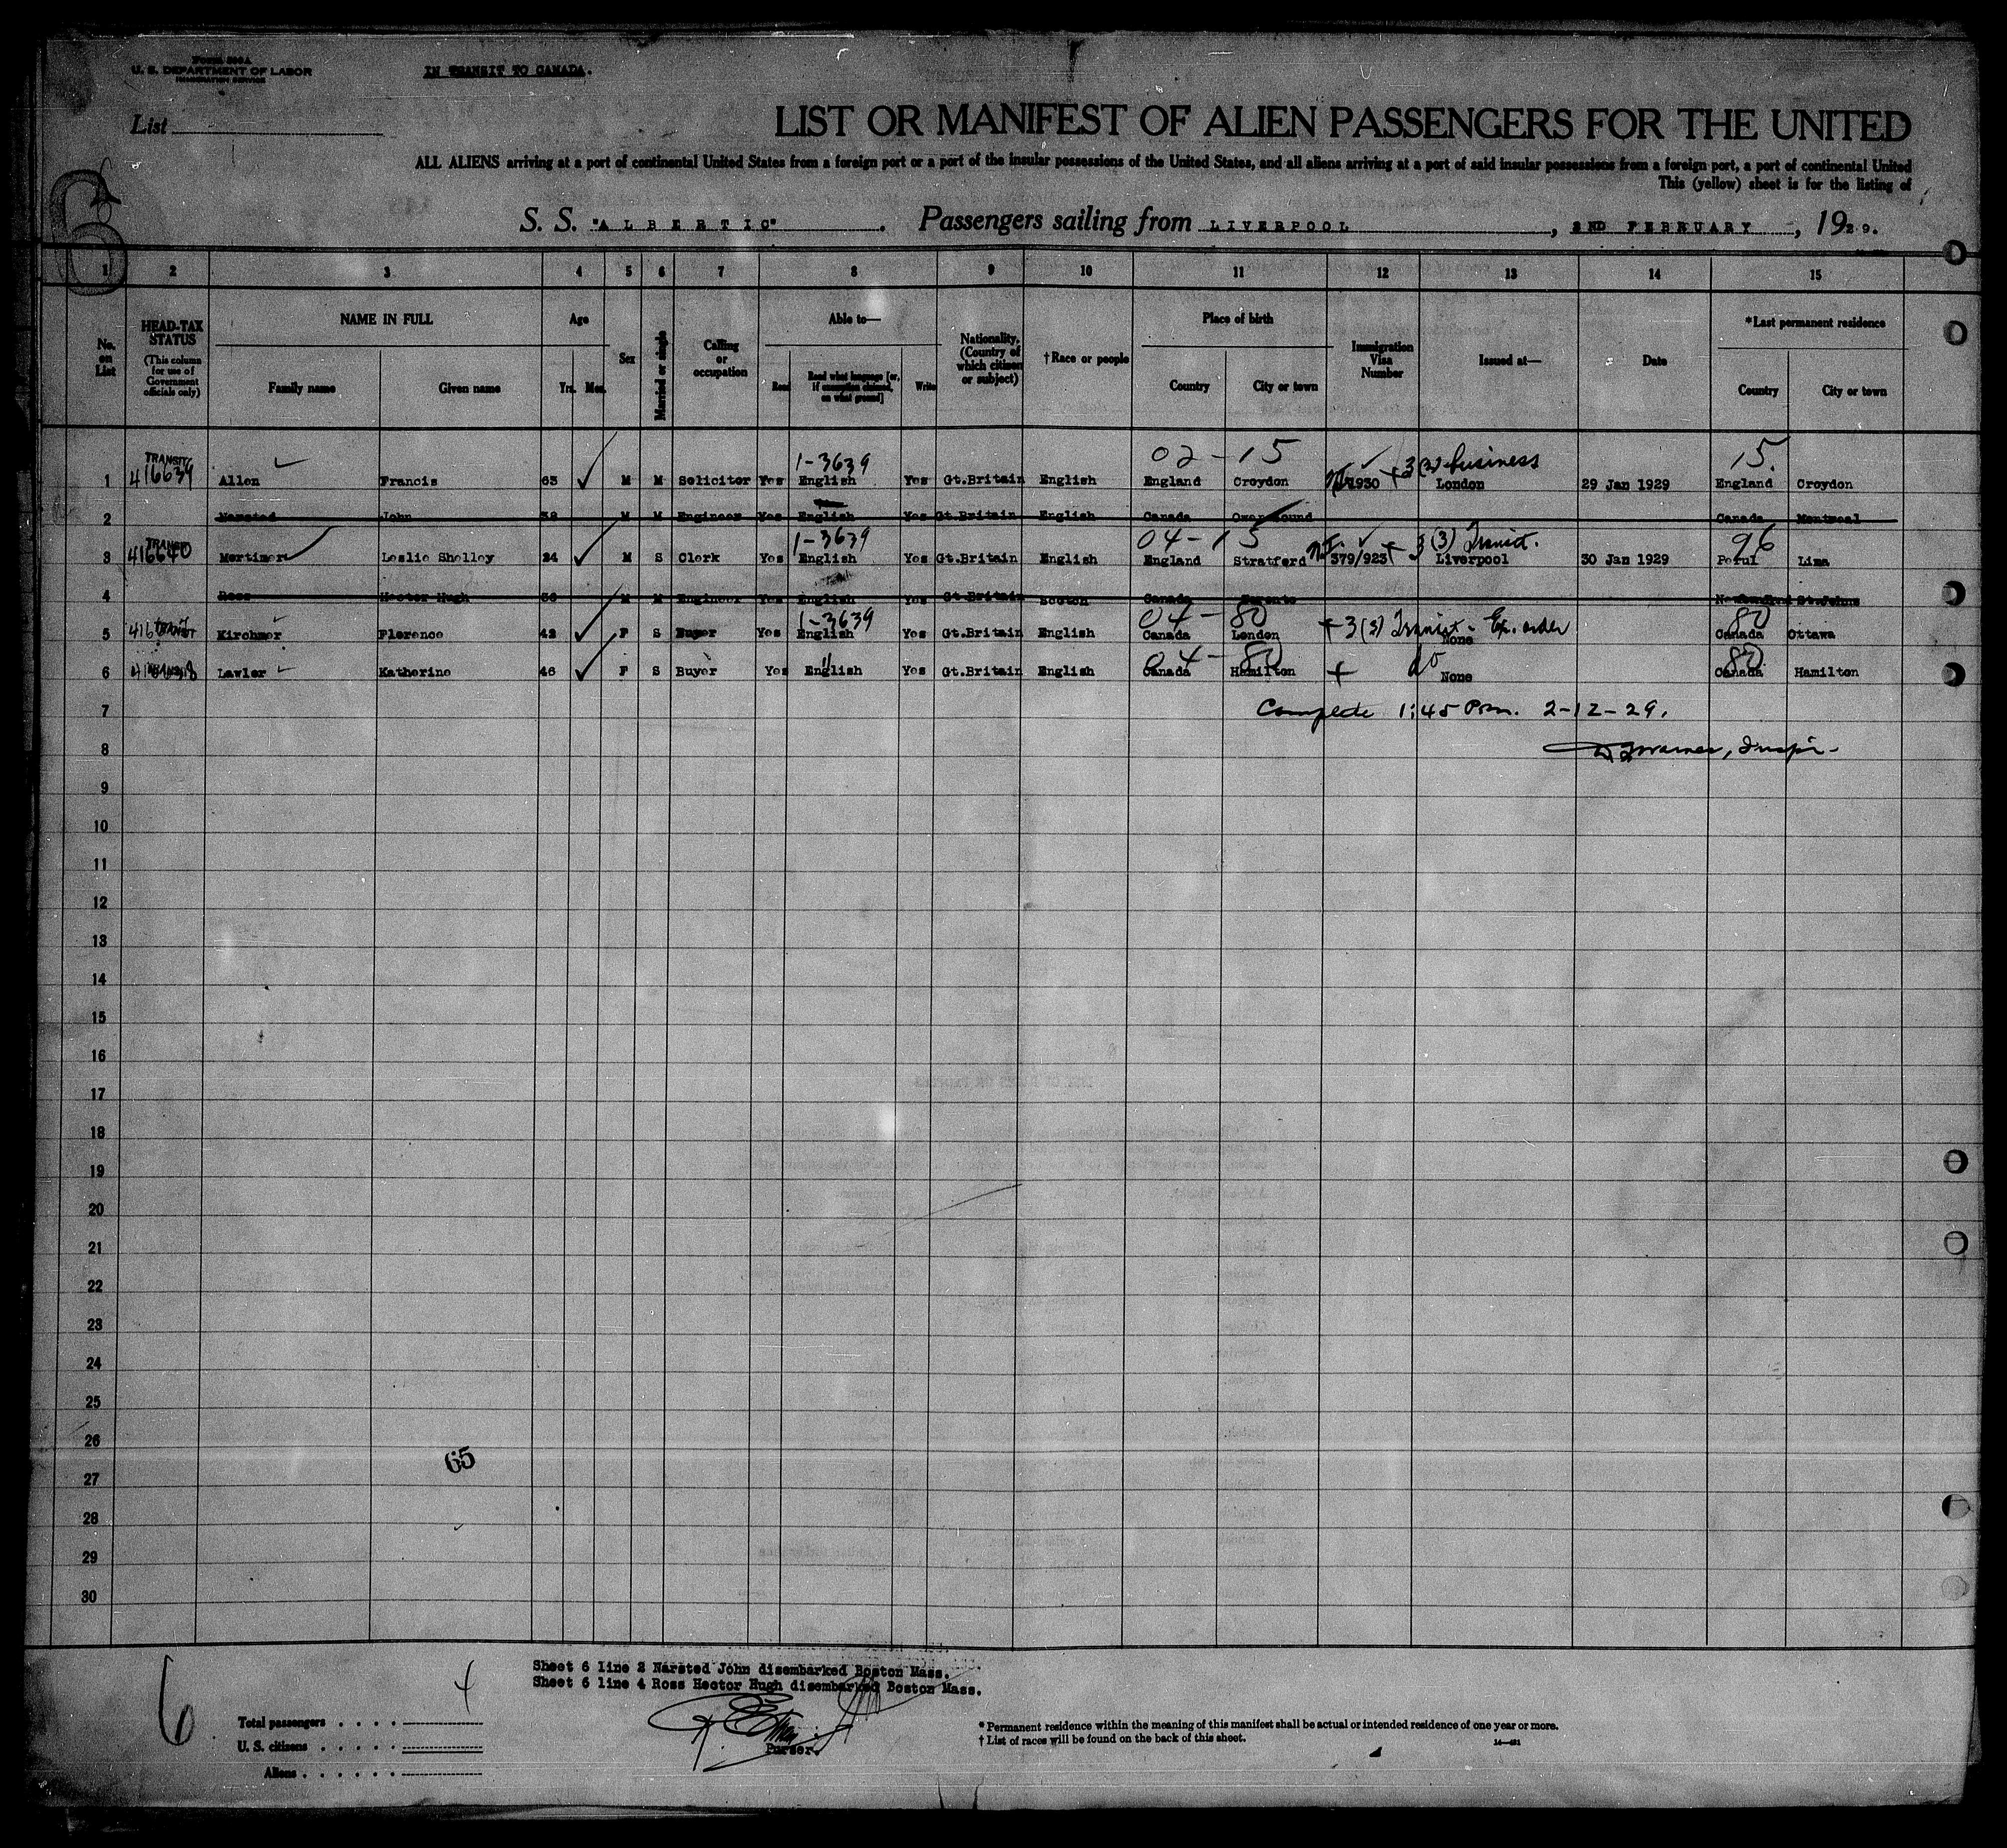 Form 500 A
U. S. DEPARTMENT OF LABOR
IMMIGRATION SERVICE
IN TRANSIT TO CANADA.
List
LIST OR MANIFEST OF ALIEN PASSENGERS FOR THE UNITED
ALL ALIENS arriving at a port of continental United States from a foreign port or a port of the insular possessions of the United States, and all aliens arriving at a port of said insular possessions from a foreign port, a port of continental United
This (yellow) sheet is for the listing of
S. S. "ALBERTIC". Passengers sailing from LIVERPOOL, 2ND FEBRUARY, 1929.
1 2 3 4 5 6 7 8 9 10 11 12 13 14 15
No. on List
HEAD-TAX STATUS (This column for use of Government officials only)
NAME IN FULL
Family name Given name
Age
Yrs. Mos.
Sex
Married or single
Calling or occupation
Able to—
Read Read what language [or, if exemption claimed, on what ground] Write
Nationality. (Country of which citizen or subject)
†Race or people
Place of birth
Country City or town
Immigration Visa Number
Issued at—
Date
*Last permanent residence
Country City or town
TRANSIT 1-3639 02-15 3(2) business 15.
1 416639 Allen Francis 63 M M Solicitor Yes English Yes Gt.Britain English England Croydon 1930 London 29 Jan 1929 England Croydon
2 John M M Engineer Yes English Yes Gt.Britain English Canada Owen Sound Canada Montreal
TRANSIT 1-3639 04-15 3(3) Transit. 96
3 416640 Mortimer Leslie Shelley 24 M S Clerk Yes English Yes Gt.Britain English England Stratford 379/923 Liverpool 30 Jan 1929 Peru Lima
4 Ross Hector Hugh M M Engineer Yes English Yes Gt.Britain Scotch Canada Toronto Newfoundland St.Johns
1-3639 04-80 +3(3) Transit - Ex. order 80
5 TRANSIT Kirchmer Florence 42 F S Buyer Yes English Yes Gt.Britain English Canada London None Canada Ottawa
04-80 + do 80
6 Lawler Katherine 46 F S Buyer Yes English Yes Gt.Britain English Canada Hamilton None Canada Hamilton
7 Complete 1:45 Pm. 2-12-29.
8 Inspr-
9
10
11
12
13
14
15
16
17
18
19
20
21
22
23
24
25
26
65
27
28
29
30
Sheet 6 line 2 Narsted John disembarked Boston Mass.
Sheet 6 line 4 Ross Hector Hugh disembarked Boston Mass.
6
4
Total passengers
U. S. citizens
Aliens
Purser.
* Permanent residence within the meaning of this manifest shall be actual or intended residence of one year or more.
† List of races will be found on the back of this sheet.